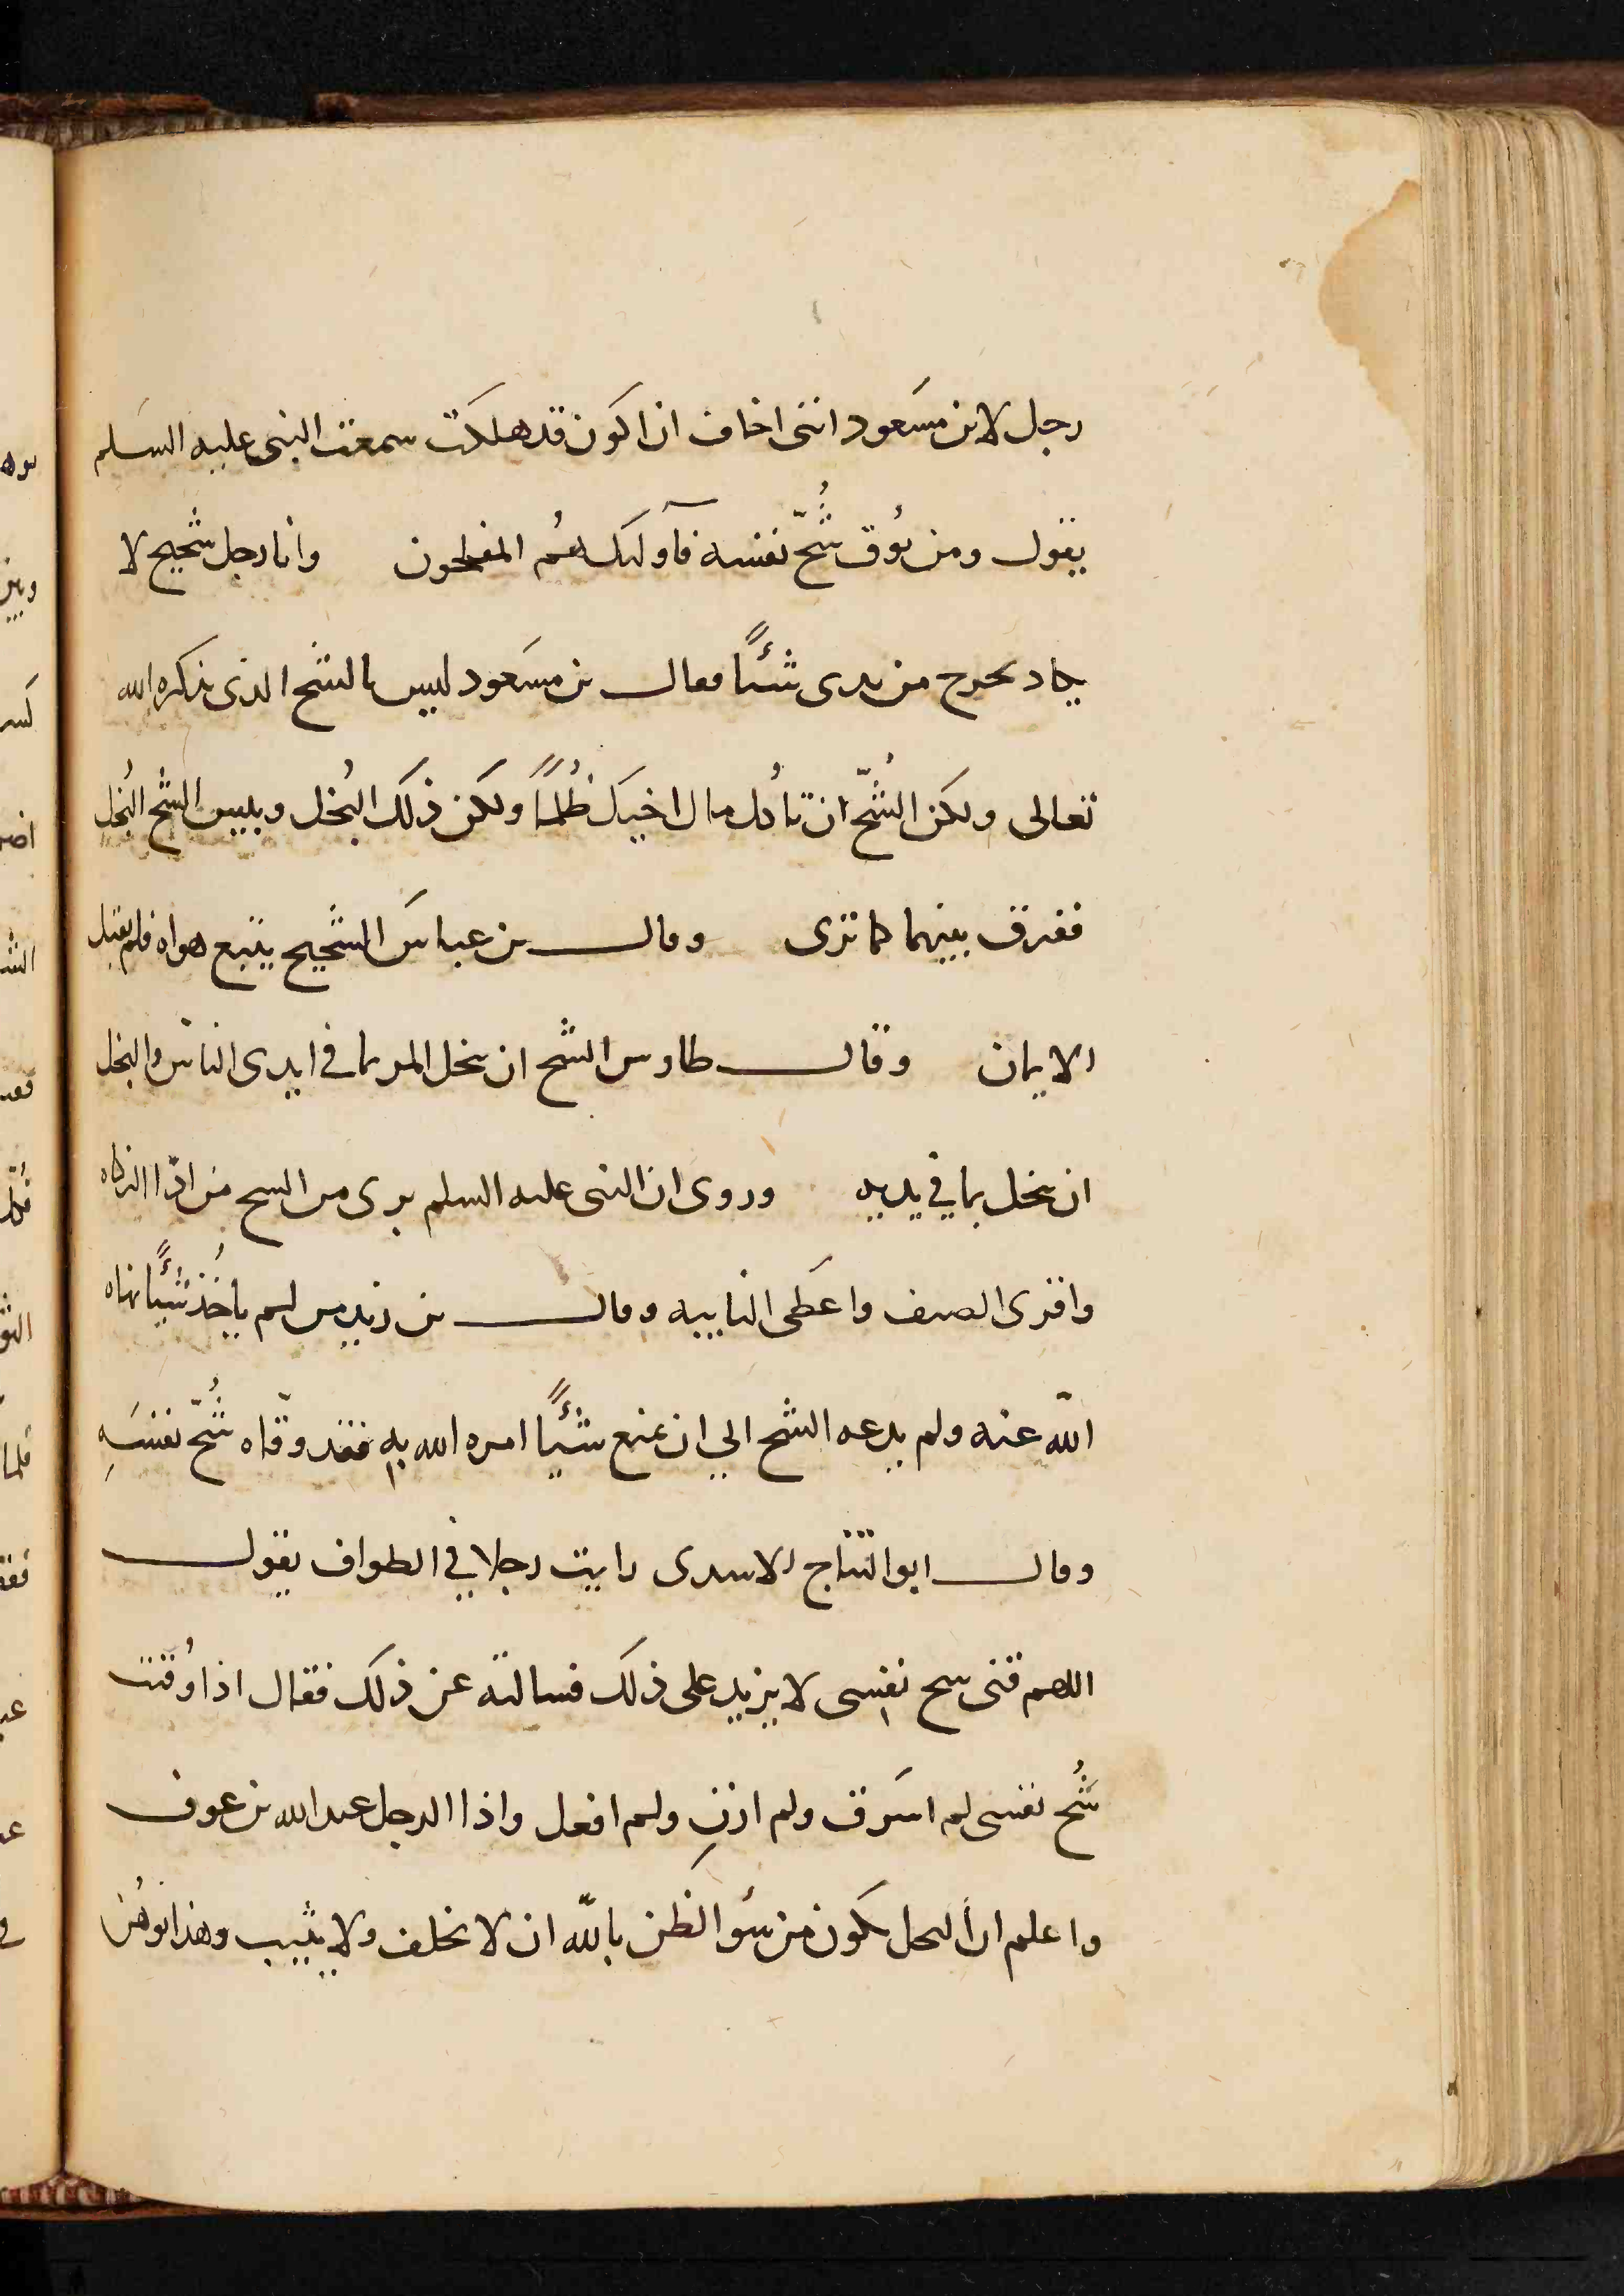 رجل لابن مسَعود انني اخاف ان اكون قد هلكت سمعت النبي عليه السَلم
يقول ومن يُوق شُحّ نفسه فآوليك هُم المفلحون وانا رجل شحيح لا
يكاد يخرج من يدي شئًا فقال بن مسَعود ليس بالشح الذي يذكره الله
تعالى ولكن الشُحّ ان تاكُل مال اخيك ظُلمًا ولكن ذلك البُخل وبيس الشح البُخل
ففرق بينهما كما ترى وقال بن عباسَ الشحيح يتبع هواه فلم يقبل
الايمان وقال طاوس الشح ان يبخل المر بما في ايدي الناسَ والبخل
ان يبخل بما في يديه وروى ان النبي عليه السلم برى من الشح من ادّا الزكاه
واقرى الضيف واعَطى النايبه وقال بن زيد من لم ياخُذ شئًيا نهاه
اللّه عنه ولم يدعه الشح الي ان يمنع شئًيا امره الله بهِ فقد وقّاه شُحّ نفسَهِ
وقال ابو التتاج الاسدى رايت رجلا في الطواف يقول
اللهم قنى شح نفسى لا يزيد على ذلك فسالته عن ذلك فقال اذا وُقيت
شُح نفسى لم اسَرق ولم ازنِ ولم افعل واذا الرجل عبد الله بن عوف
واعلم ان البخل يكون من سُوا لظن باللّه ان لا يخلف ولا يثيب وهذا توهُن